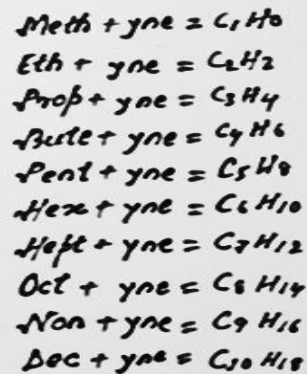 Meth + yne = C1H0
Eth + yne = C2H2
Prop + yne = C3H4
Bute + yne = C4H6
Pent + yne = C5H8
Hex + yne = C6H10
Hept + yne = C7H12
Oct + yne = C8H14
Non + yne = C9H16
Dec + yne = C10H18